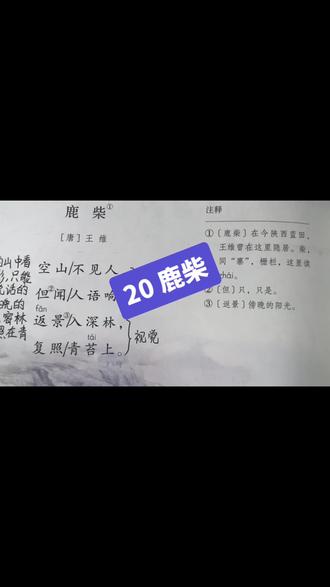 鹿柴①
[唐]王 维
空山/不见人
但②闻/人语响
fǎn
返景③/入深林，
tái
复照/青苔上。
视觉
山中看
只能
说话的
晚的
密林
照在青
20 鹿柴
注释
①〔鹿柴〕在今陕西蓝田，
王维曾在这里隐居。柴，
同“寨”，栅栏，这里读
zhài。
②〔但〕只，只是。
③〔返景〕傍晚的阳光。